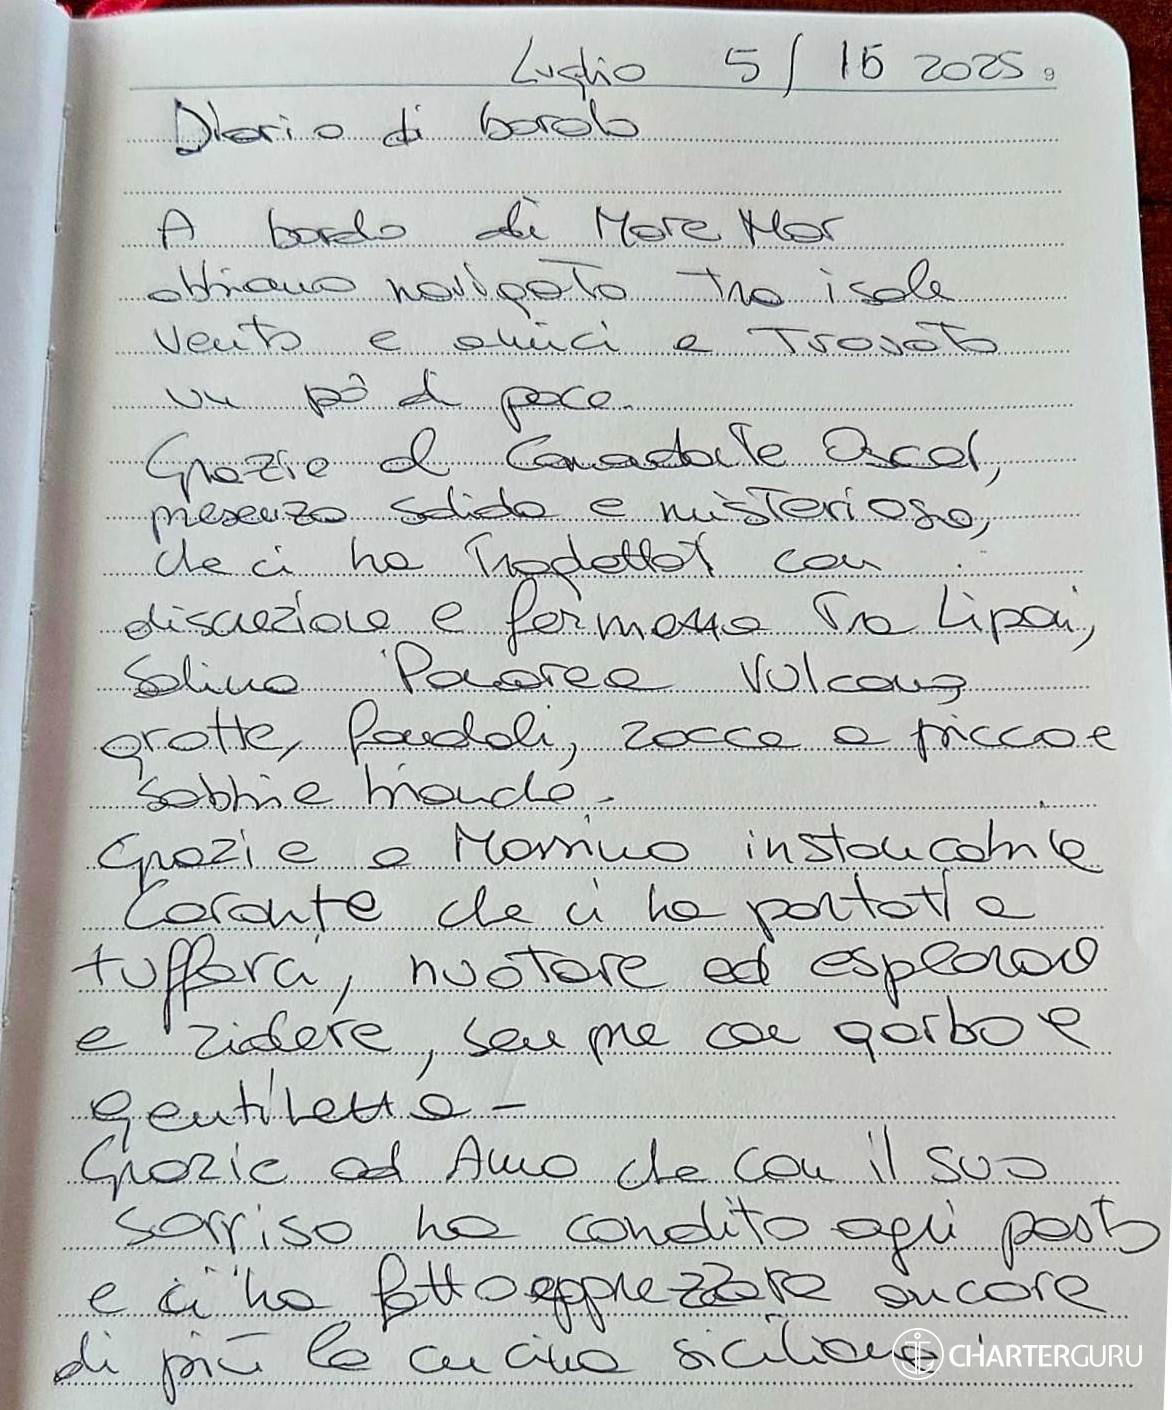 Luglio 5/15 2025
Diario di bordo
A bordo di More Mar
abbiamo navigato tra isole
vento e amici e trovato
un pò di pace.
Grazie al Comandante Oscar,
presenza solida e misteriosa,
che ci ha
con
discrezione e fermezza tra Lipari,
Salina Panarea Vulcano
grotte, fondali, rocce a picco e
sabbie bianche.
Grazie a Massimo instancabile
che ci ha portati a
tuffarci, nuotare ed esplorare
e ridere, sempre con garbo e
gentilezza -
Grazie ad Anna che con il suo
sorriso ha condito ogni pasto
e ci ha fatto apprezzare ancora
di più la cucina siciliana
CHARTERGURU